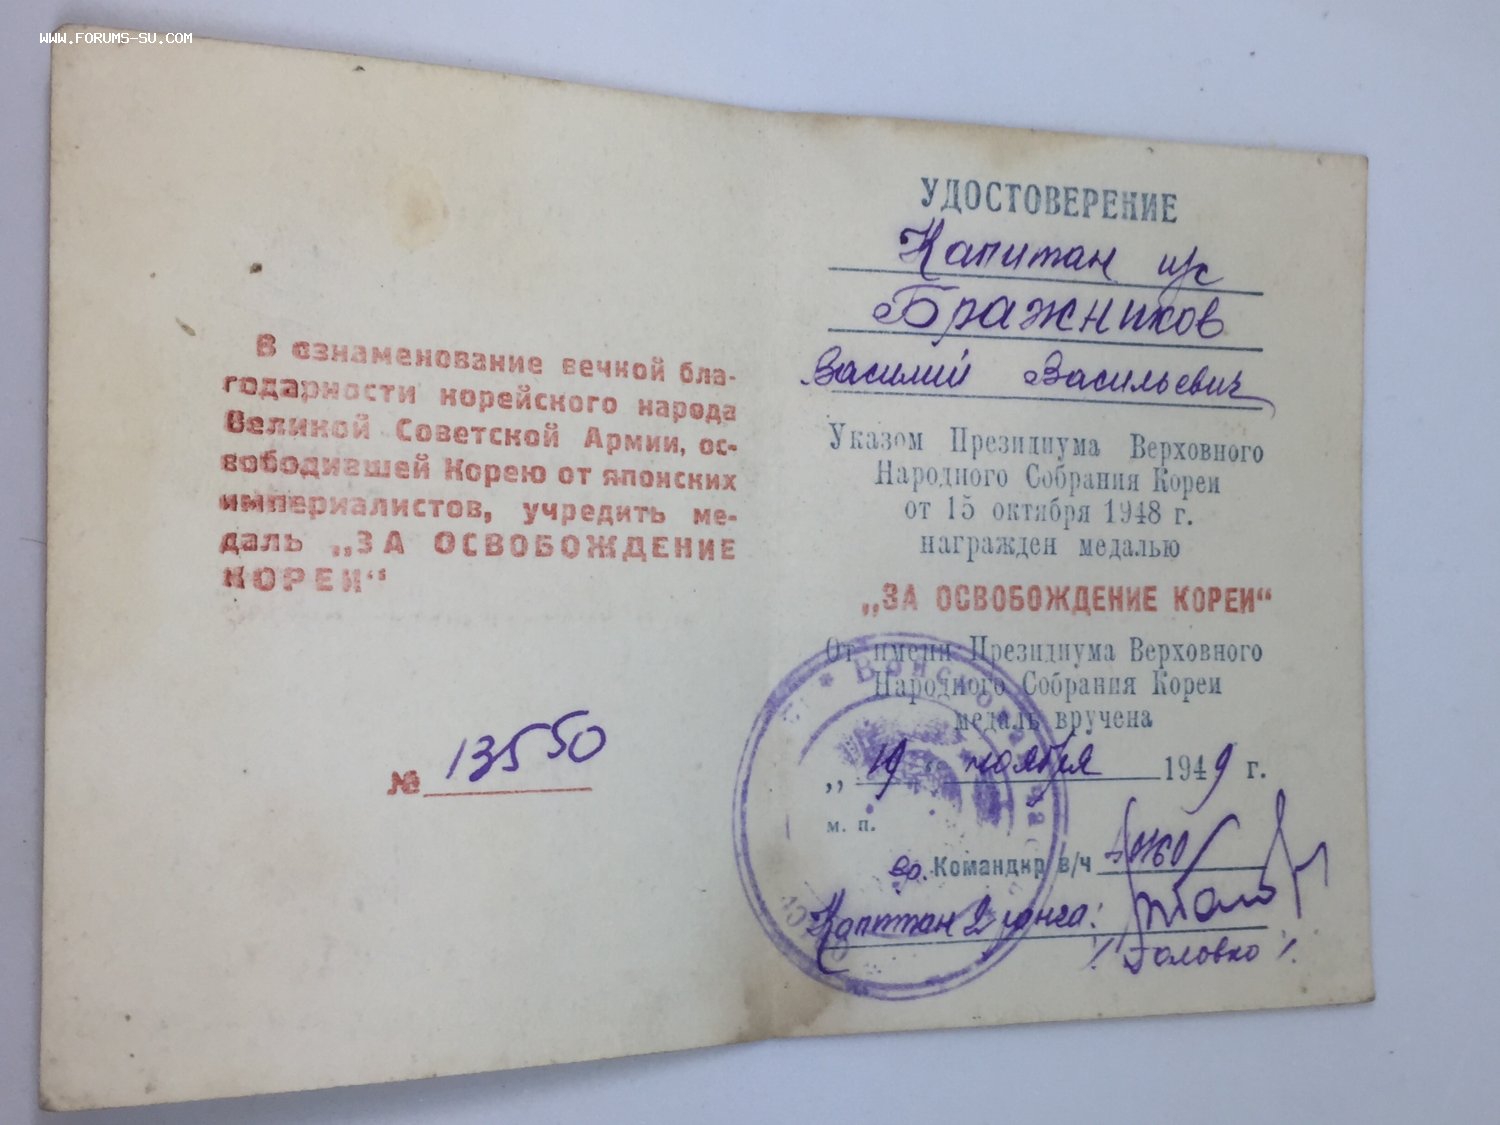 WWW.FORUMS-SU.COM
В ознаменование вечной бла-
годарности корейского народа
Великой Советской Армии, ос-
вободившей Корею от японских
империалистов, учредить ме-
даль „ЗА ОСВОБОЖДЕНИЕ
КОРЕИ“
№ 13550
УДОСТОВЕРЕНИЕ
Капитан и/с
Бражников
Василий Васильевич
Указом Президиума Верховного
Народного Собрания Кореи
от 15 октября 1948 г.
награжден медалью
„ЗА ОСВОБОЖДЕНИЕ КОРЕИ“
От имени Президиума Верховного
Народного Собрания Кореи
медаль вручена
„19“ ноября 1949 г.
м. п.
Войсковая час
вр. Командир в/ч
Капитан 2 ранга:
/Головко/.